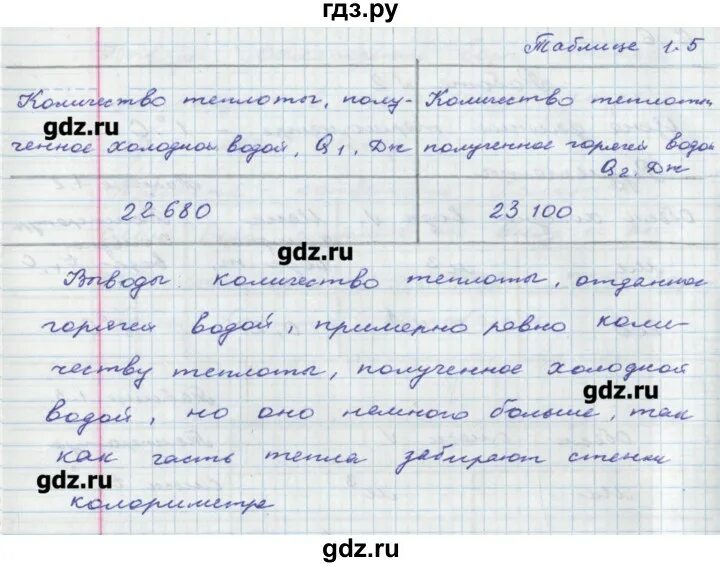 гдз.ру
Таблице 1.5
Количество теплоты, полу-
ченное холодной водой, Q1, Дж
Количество теплоты,
полученное горячей водой
Q2, Дж
gdz.ru
22 680
23 100
gdz.ru
Выводы: количество теплоты, отданное
горячей водой, примерно равно коли-
честву теплоты, полученное холодной
gdz.ru
водой, но оно немного больше, так
как часть тепла забирают стенки
gdz.ru
колориметра
gdz.ru